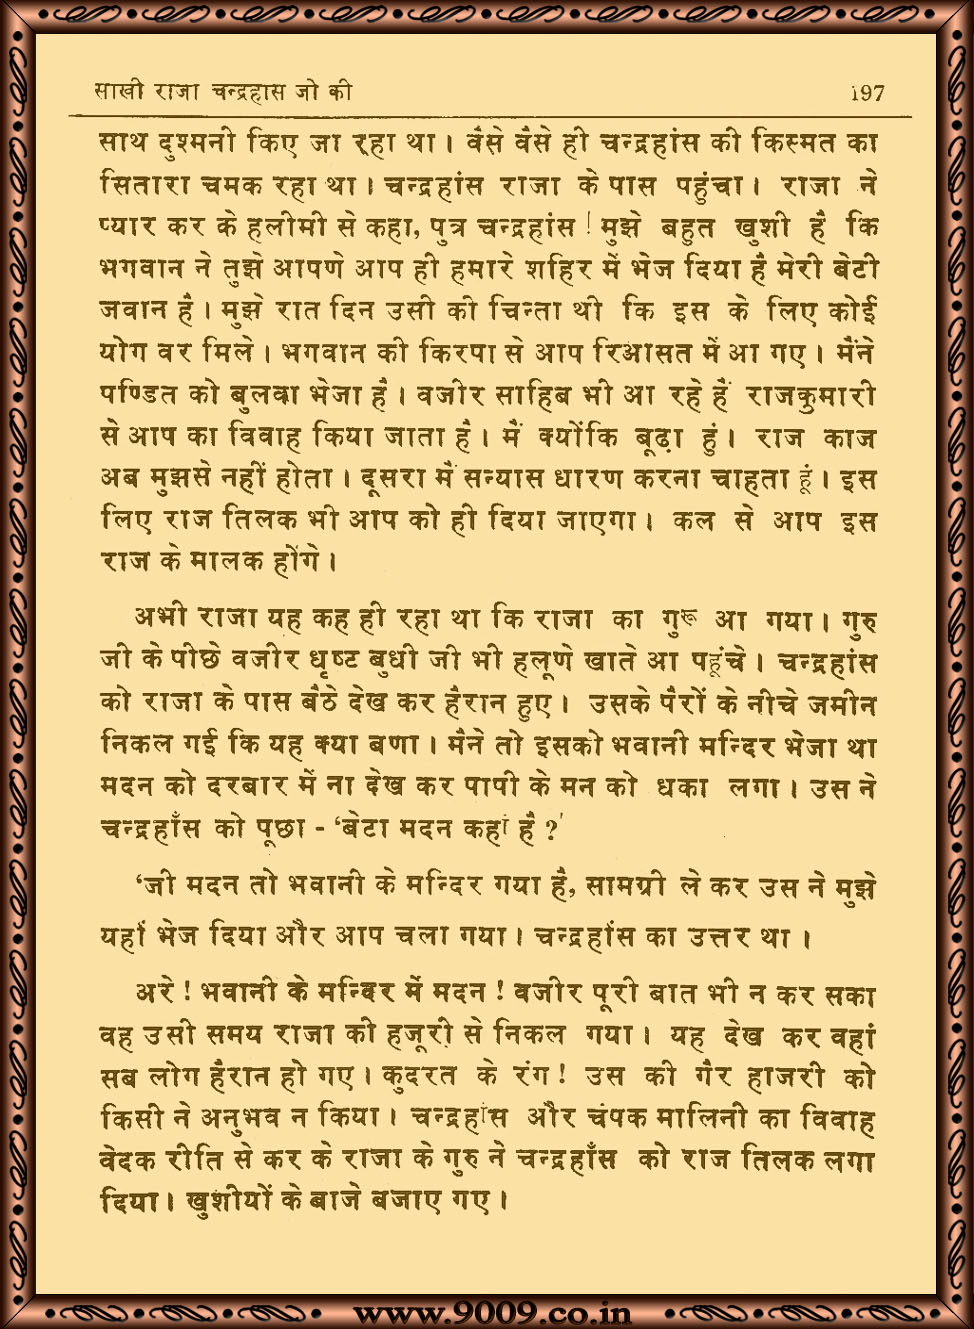 साखी राजा चन्द्रहास जी की 197
साथ दुश्मनी किए जा रहा था। वैसे वैसे ही चन्द्रहांस की किस्मत का
सितारा चमक रहा था। चन्द्रहांस राजा के पास पहुंचा। राजा ने
प्यार कर के हलीमी से कहा, पुत्र चन्द्रहांस ! मुझे बहुत खुशी है कि
भगवान ने तुझे आपणे आप ही हमारे शहिर में भेज दिया है मेरी बेटी
जवान है। मुझे रात दिन उसी की चिन्ता थी कि इस के लिए कोई
योग वर मिले। भगवान की किरपा से आप रिआसत में आ गए। मैंने
पण्डित को बुलवा भेजा है। वजीर साहिब भी आ रहे हैं राजकुमारी
से आप का विवाह किया जाता है। मैं क्योंकि बूढ़ा हुं। राज काज
अब मुझसे नहीं होता। दूसरा मैं सन्यास धारण करना चाहता हूं। इस
लिए राज तिलक भी आप को ही दिया जाएगा। कल से आप इस
राज के मालक होंगे।
अभी राजा यह कह ही रहा था कि राजा का गुरू आ गया। गुरु
जी के पीछे वजीर धृष्ट बुधी जी भी हलूणे खाते आ पहूंचे। चन्द्रहांस
को राजा के पास बैठे देख कर हैरान हुए। उसके पैरों के नीचे जमीन
निकल गई कि यह क्या बणा। मैंने तो इसको भवानी मन्दिर भेजा था
मदन को दरबार में ना देख कर पापी के मन को धका लगा। उस ने
चन्द्रहाँस को पूछा - 'बेटा मदन कहां है ?'
'जी मदन तो भवानी के मन्दिर गया है, सामग्री ले कर उस ने मुझे
यहां भेज दिया और आप चला गया। चन्द्रहांस का उत्तर था।
अरे ! भवानी के मन्दिर में मदन ! वजीर पूरी बात भी न कर सका
वह उसी समय राजा की हजूरी से निकल गया। यह देख कर वहां
सब लोग हैरान हो गए। कुदरत के रंग! उस की गैर हाजरी को
किसी ने अनुभव न किया। चन्द्रहांस और चंपक मालिनी का विवाह
वेदक रीति से कर के राजा के गुरु ने चन्द्रहाँस को राज तिलक लगा
दिया। खुशीयों के बाजे बजाए गए।
www.9009.co.in